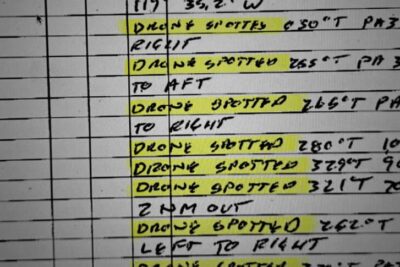 117° 35.2' W
DRONE SPOTTED 030°T PA3
RIGHT
DRONE SPOTTED 255°T PA 3
TO AFT
DRONE SPOTTED 265°T PA
TO RIGHT
DRONE SPOTTED 280°T 10
DRONE SPOTTED 329°T 90
DRONE SPOTTED 321°T 70
2 NM OUT
DRONE SPOTTED 262°T
LEFT TO RIGHT
DRONE SPOTTED